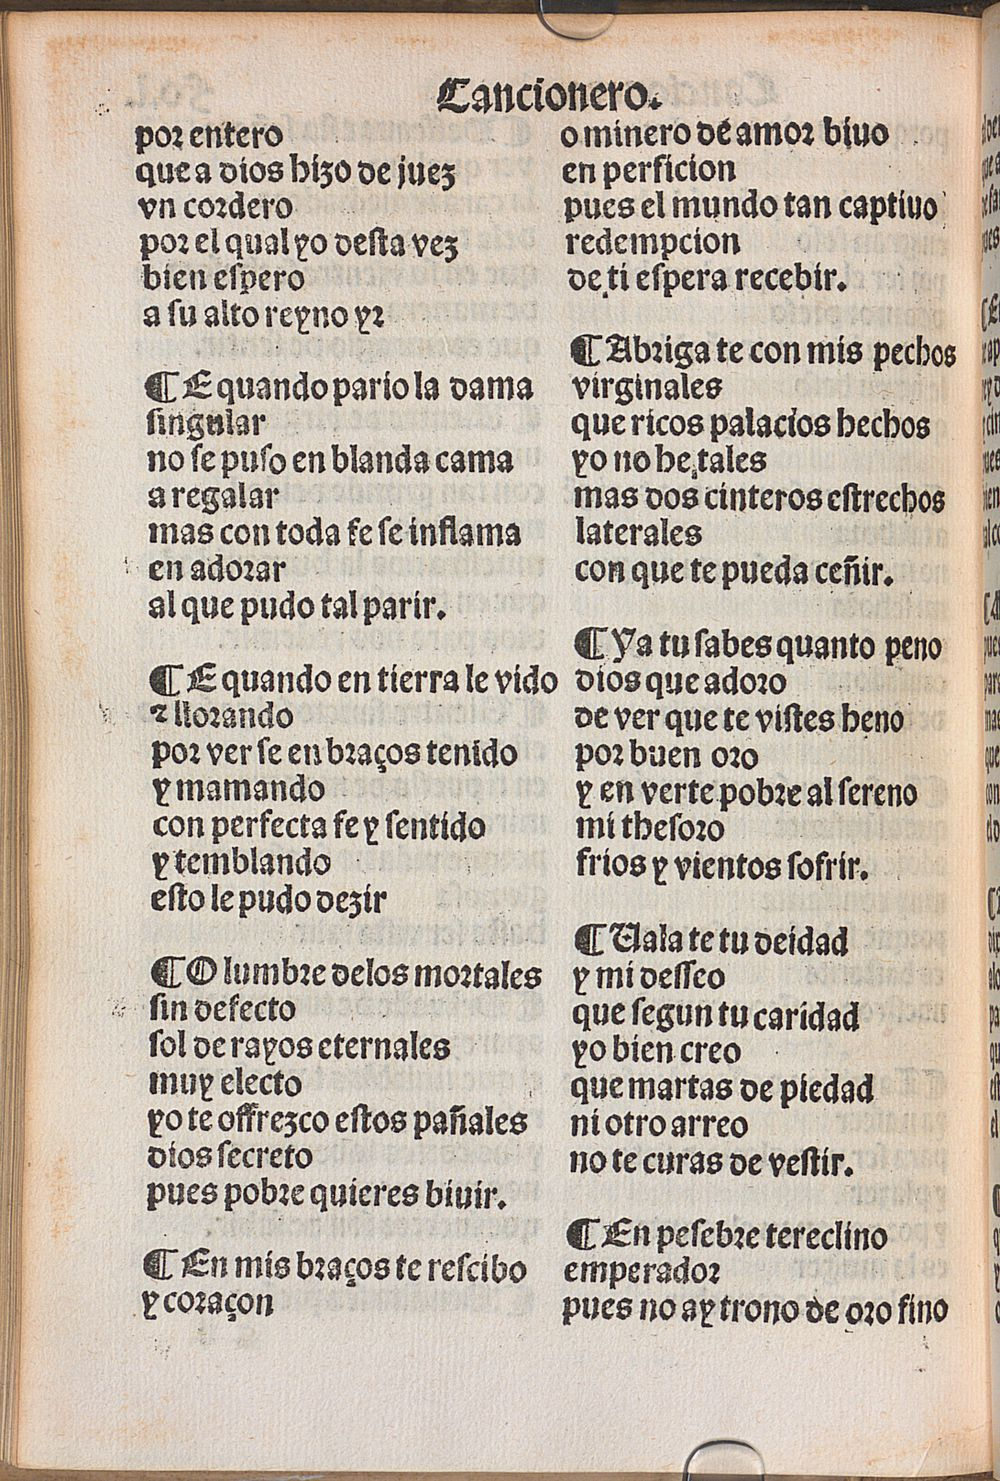 Cancionero.
por entero
que a dios hizo de juez
vn cordero
por el qual yo desta vez
bien espero
a su alto reyno yr
¶ E quando pario la dama
singular
no se puso en blanda cama
a regalar
mas con toda fe se inflama
en adorar
al que pudo tal parir.
¶ E quando en tierra le vido
⁊ llorando
por ver se en braços tenido
y mamando
con perfecta fe y sentido
y temblando
esto le pudo dezir
¶ O lumbre delos mortales
sin defecto
sol de rayos eternales
muy electo
yo te offrezco estos pañales
dios secreto
pues pobre quieres biuir.
¶ En mis braços te rescibo
y coraçon
o minero de amor biuo
en perficion
pues el mundo tan captiuo
redempcion
de ti espera recebir.
¶ Abriga te con mis pechos
virginales
que ricos palacios hechos
yo no he tales
mas dos cinteros estrechos
laterales
con que te pueda ceñir.
¶ Ya tu sabes quanto peno
dios que adoro
de ver que te vistes heno
por buen oro
y en verte pobre al sereno
mi thesoro
frios y vientos sofrir.
¶ Uala te tu deidad
y mi desseo
que segun tu caridad
yo bien creo
que martas de piedad
ni otro arreo
no te curas de vestir.
¶ En pesebre te reclino
emperador
pues no ay trono de oro fino